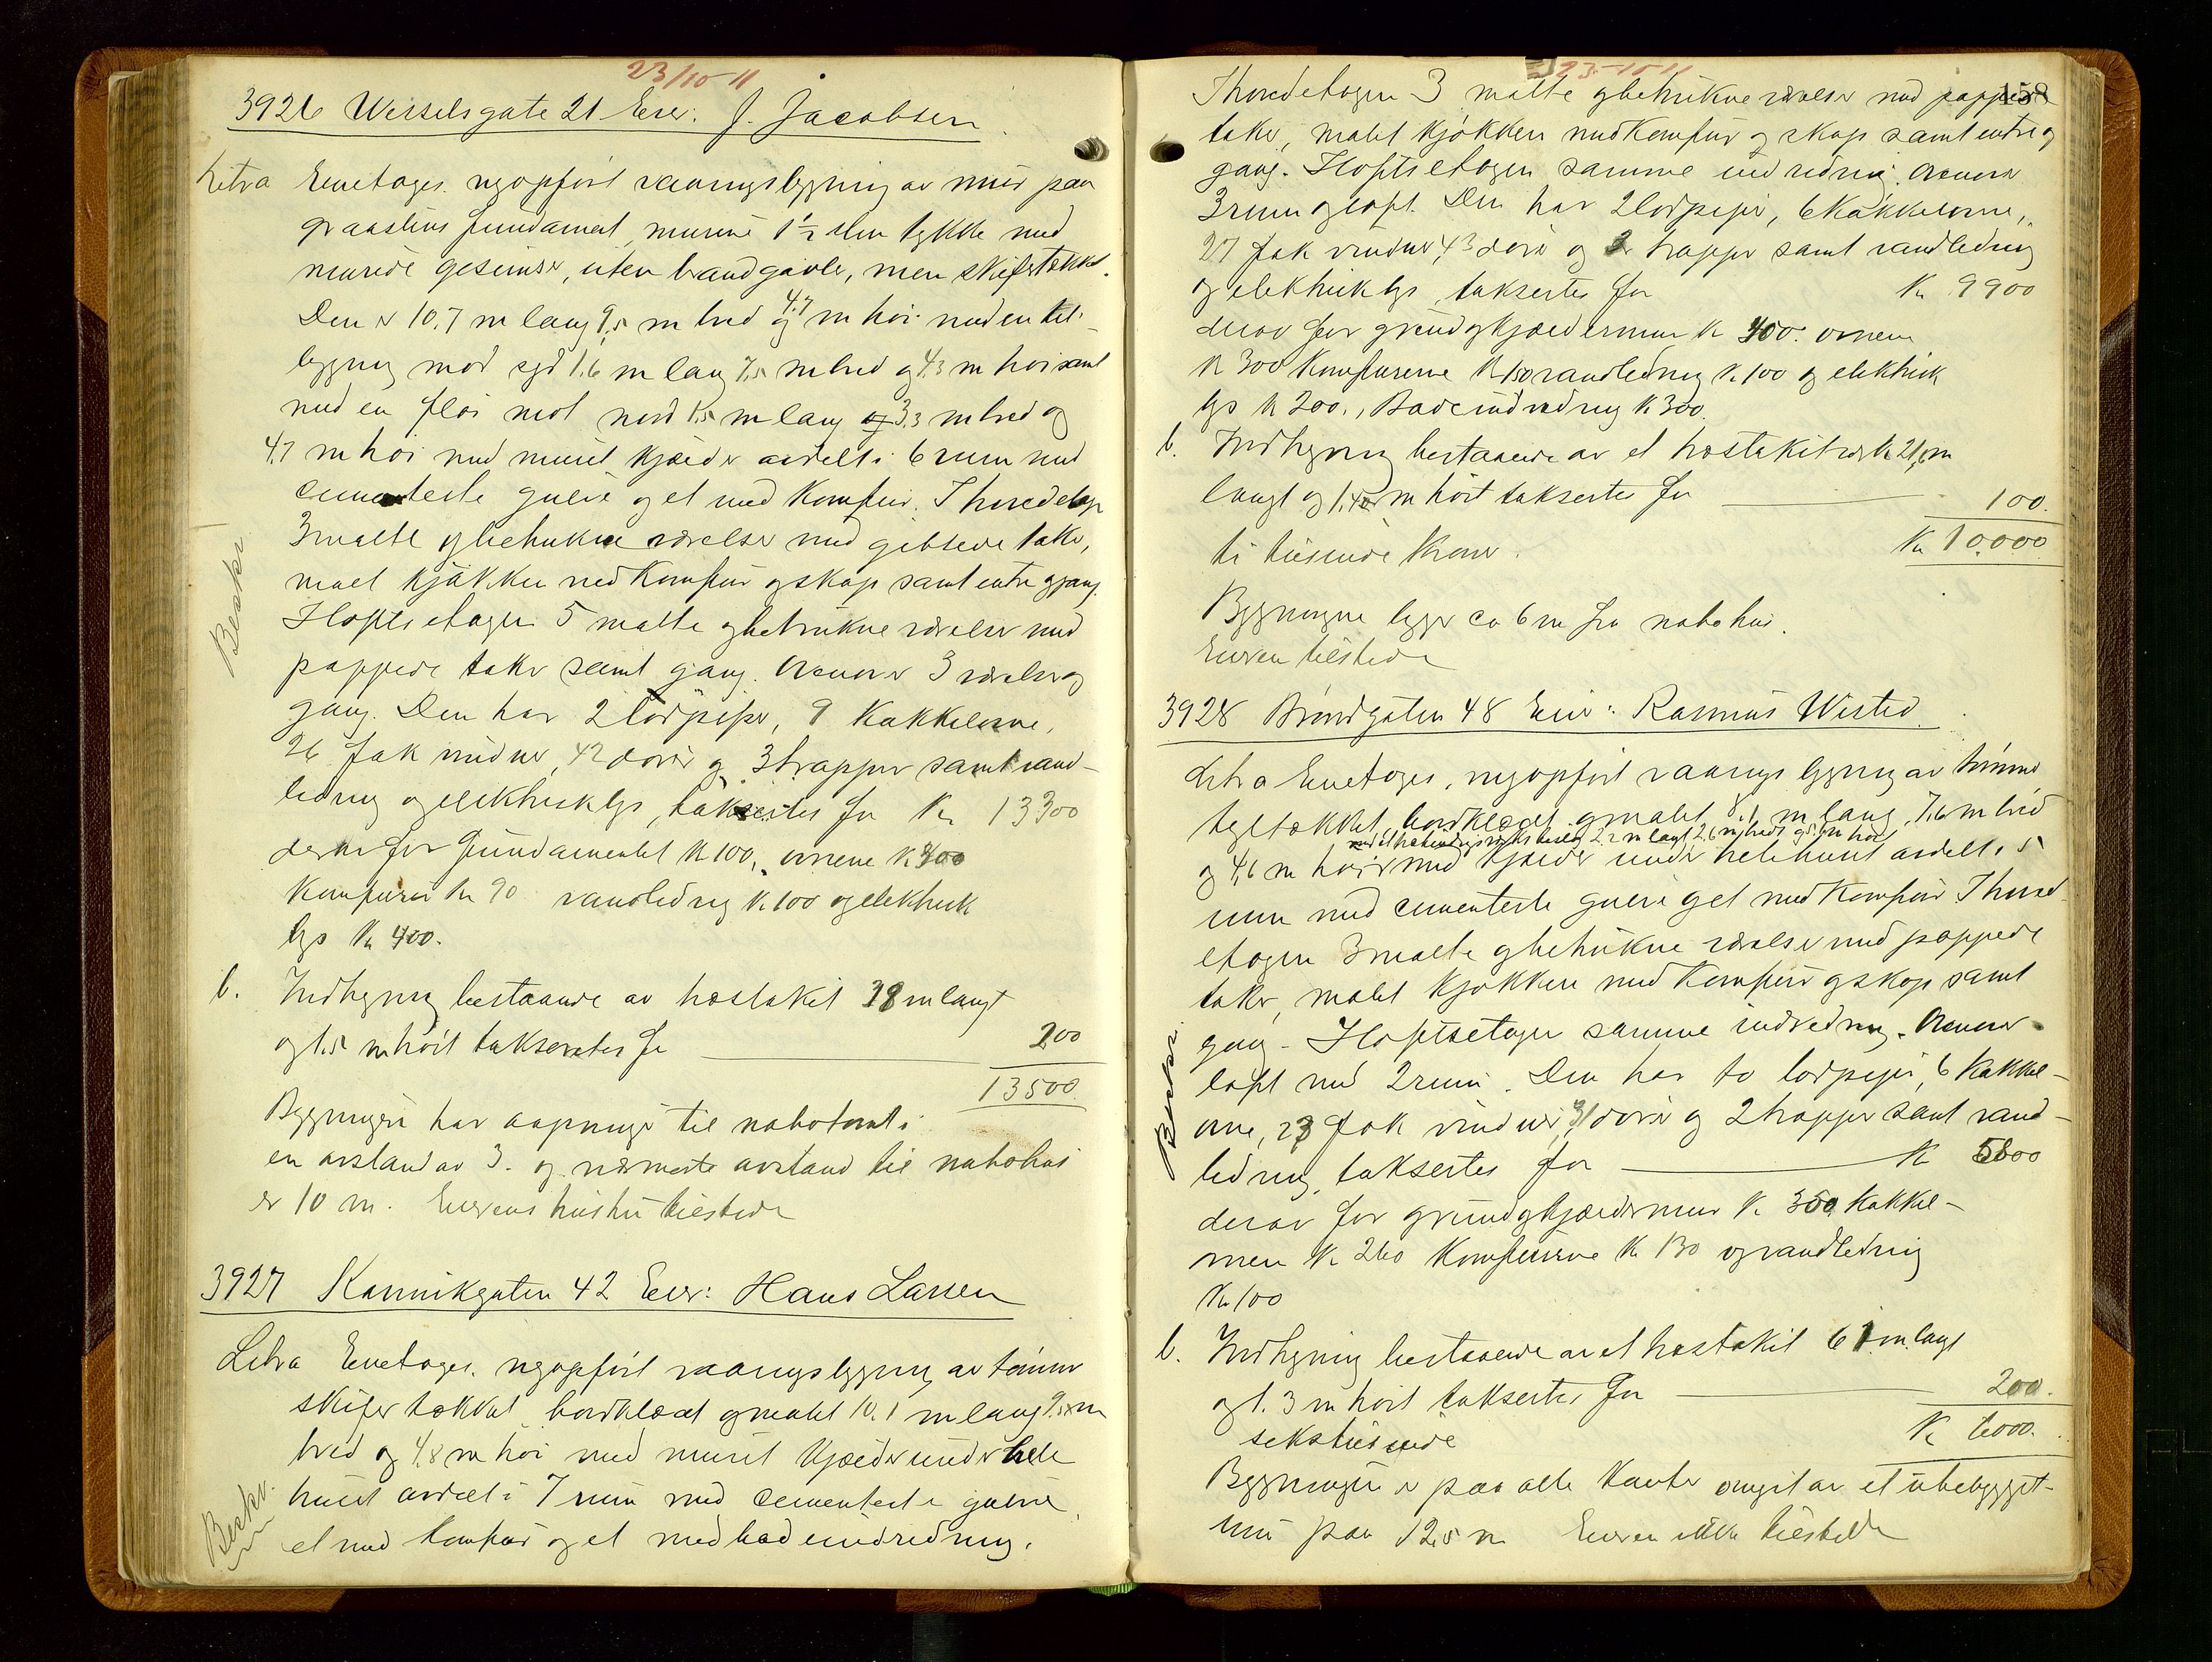 23/10-11
3926 Wesselsgate 21 Eier: J. Jacobsen
Litra Eenetages nyopført vaaningsbygning av mur paa
graastens fundament, murene 1½ sten tykke med
murede gesimser, uten brandgavle, men skifertækket.
Den er 10.7 m lang 9,5 m bred og 4.7 m høi med en til-
bygning mod syd 1.6 m lang 7,5 m bred og 4.3 m høi samt
med en fløi mot nord 1.5 m lang 3.3 m bred og
4.7 m høi med muret kjælder avdelt i 6 rum med
cementerte gulve og et med komfur. I hovedetagen
3 malte og betrukne værelser med gibsede take,
malt kjøkken med komfur og skap samt entre og gang.
I loftsetagen 5 malte og betrukne værelser med
pappede taker samt gang. Ovenover 3 værelser og
gang. Den har 2 lodpiper, 9 kakkelovne,
26 fak vinduer, 42 dører og 3 trapper samt vand-
ledning og elektrisk lys, taksertes for Kr 13300
derav for fundamentet Kr 100, ovnene Kr 400
Komfurer Kr 90 vandledning Kr 100 og elektrisk
lys Kr 400.
b. Indhegning bestaaende av hestakit 38 m langt
og 1.5 m høit takseretes for 200
13500
Bygningen har aapninger til nabotomt i
en avstand av 3. og nærmeste avstand til nabohus
er 10 m. Eierens hustru tilstede
Beskr
3927 Kannikgaten 42 Eier: Hans Larsen
Litra Eenetages nyopført vaaningsbygning av tømmer
skifertækket, bordklædt og malet 10.1 m lang 9.5 m
bred og 4.8 m høi med muret kjælder under hele
huset avdelt i 7 rum med cementerte gulve
et med komfur og et med badeindredning.
Beskr.
23-10-11
158
I hovedetagen 3 malte og betrukne værelser med pappede
taker, malet kjøkken med komfur og skap samt entre og
gang. I loftsetagen samme indredning. Ovenover
3 rum og loft. Den har 2 lodpiper, 6 kakkelovne,
27 fak vinduer, 43 dører og 3 trapper samt vandledning
og elektrisk lys, taksertes for Kr 9900
derav for grund og kjældermur Kr 400. ovnene
Kr 300 Komfurerne Kr 150 vandledning Kr 100 og elektrisk
lys Kr 200., Badeindredning Kr 300.
b. Indhegning bestaaende av et hestakit 21,6 m
langt og 1.40 m høit taksertes for 100.
ti tusinde kroner. Kr 10.000
Bygningene ligger ca 6 m fra nabohus.
Eieren tilstede
3928 Brøndgaten 48 Eier: Rasmus Wisted
Litra Eenetages, nyopført vaaningsbygning av tømmer
tegltækket, bordklædt og malet 8.1 m lang, 7.6 m bred
og 4,6 m høi med kjælder under hele huset avdelt i 5
rum med cementerte gulve og et med komfur I hoved-
etagen 3 malte og betrukne værelser med pappede
taker, malet kjøkken med komfur og skap samt
gang. I loftsetagen samme indredning. Ovenover
loft med 2 rum. Den har to lodpiper, 6 kakkel-
ovne, 23 fak vinduer, 31 dører og 2 trapper samt vand-
ledning, taksertes for Kr 5800
derav for grund og kjældermur Kr 350 kakkel-
ovnen Kr 260 Komfurerne Kr 130 og vandledning
Kr 100
b. Indhegning bestaaende av et hestakit 61 m langt
og 1.3 m høit taksertes for 200.
sekstusinde Kr 6000.
Bygningen er paa alle kanter omgit av et ubebygget
rum paa 12,5 m Eieren ikke tilstede
Beskr.